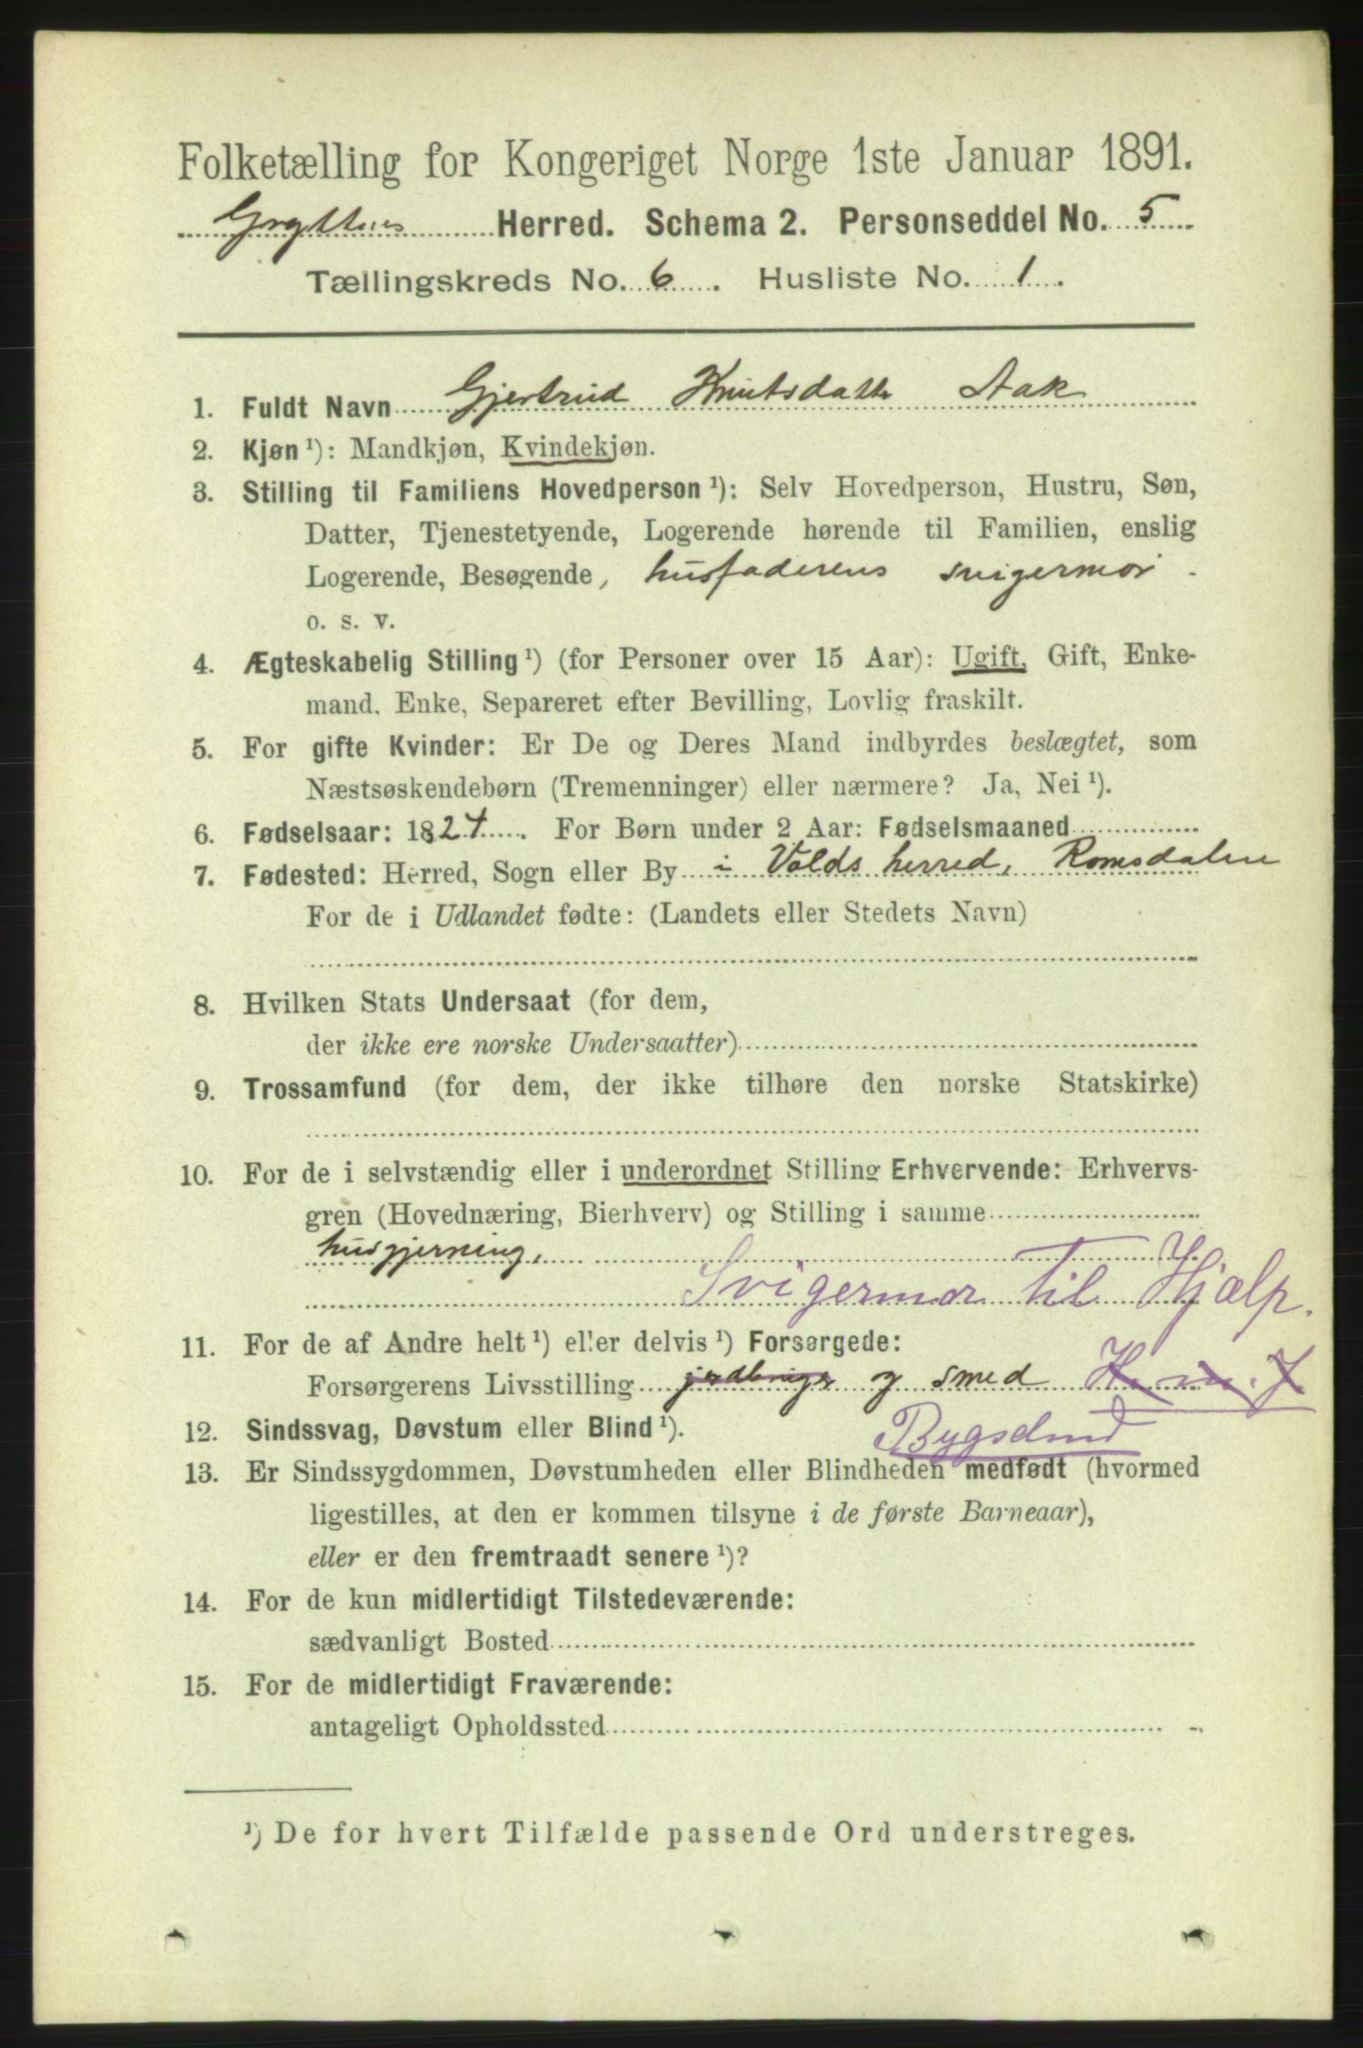 Folketælling for Kongeriget Norge 1ste Januar 1891.
Gryttens Herred. Schema 2. Personseddel No. 5
Tællingskreds No. 6. Husliste No. 1.
1. Fuldt Navn Gjertrud Knutsdatter Aak
2. Kjøn ¹): Mandkjøn, Kvindekjøn.
3. Stilling til Familiens Hovedperson ¹): Selv Hovedperson, Hustru, Søn,
Datter, Tjenestetyende, Logerende hørende til Familien, enslig
Logerende, Besøgende, husfaderens svigermor.
o. s. v.
4. Ægteskabelig Stilling ¹) (for Personer over 15 Aar): Ugift, Gift, Enke-
mand, Enke, Separeret efter Bevilling, Lovlig fraskilt.
5. For gifte Kvinder: Er De og Deres Mand indbyrdes beslægtet, som
Næstsøskendebørn (Tremenninger) eller nærmere? Ja, Nei ¹).
6. Fødselsaar: 1824. For Børn under 2 Aar: Fødselsmaaned
7. Fødested: Herred, Sogn eller By i Volds herred, Romsdalen
For de i Udlandet fødte: (Landets eller Stedets Navn)
8. Hvilken Stats Undersaat (for dem,
der ikke ere norske Undersaatter)
9. Trossamfund (for dem, der ikke tilhøre den norske Statskirke)
10. For de i selvstændig eller i underordnet Stilling Erhvervende: Erhvervs-
gren (Hovednæring, Bierhverv) og Stilling i samme
husgjerning,
Svigermor til Hjælp.
11. For de af Andre helt ¹) eller delvis ¹) Forsørgede:
Forsørgerens Livsstilling jordbruger og smed H. m. J
Bygdsmed
12. Sindssvag, Døvstum eller Blind ¹).
13. Er Sindssygdommen, Døvstumheden eller Blindheden medfødt (hvormed
ligestilles, at den er kommen tilsyne i de første Barneaar),
eller er den fremtraadt senere ¹)?
14. For de kun midlertidigt Tilstedeværende:
sædvanligt Bosted
15. For de midlertidigt Fraværende:
antageligt Opholdssted
¹) De for hvert Tilfælde passende Ord understreges.